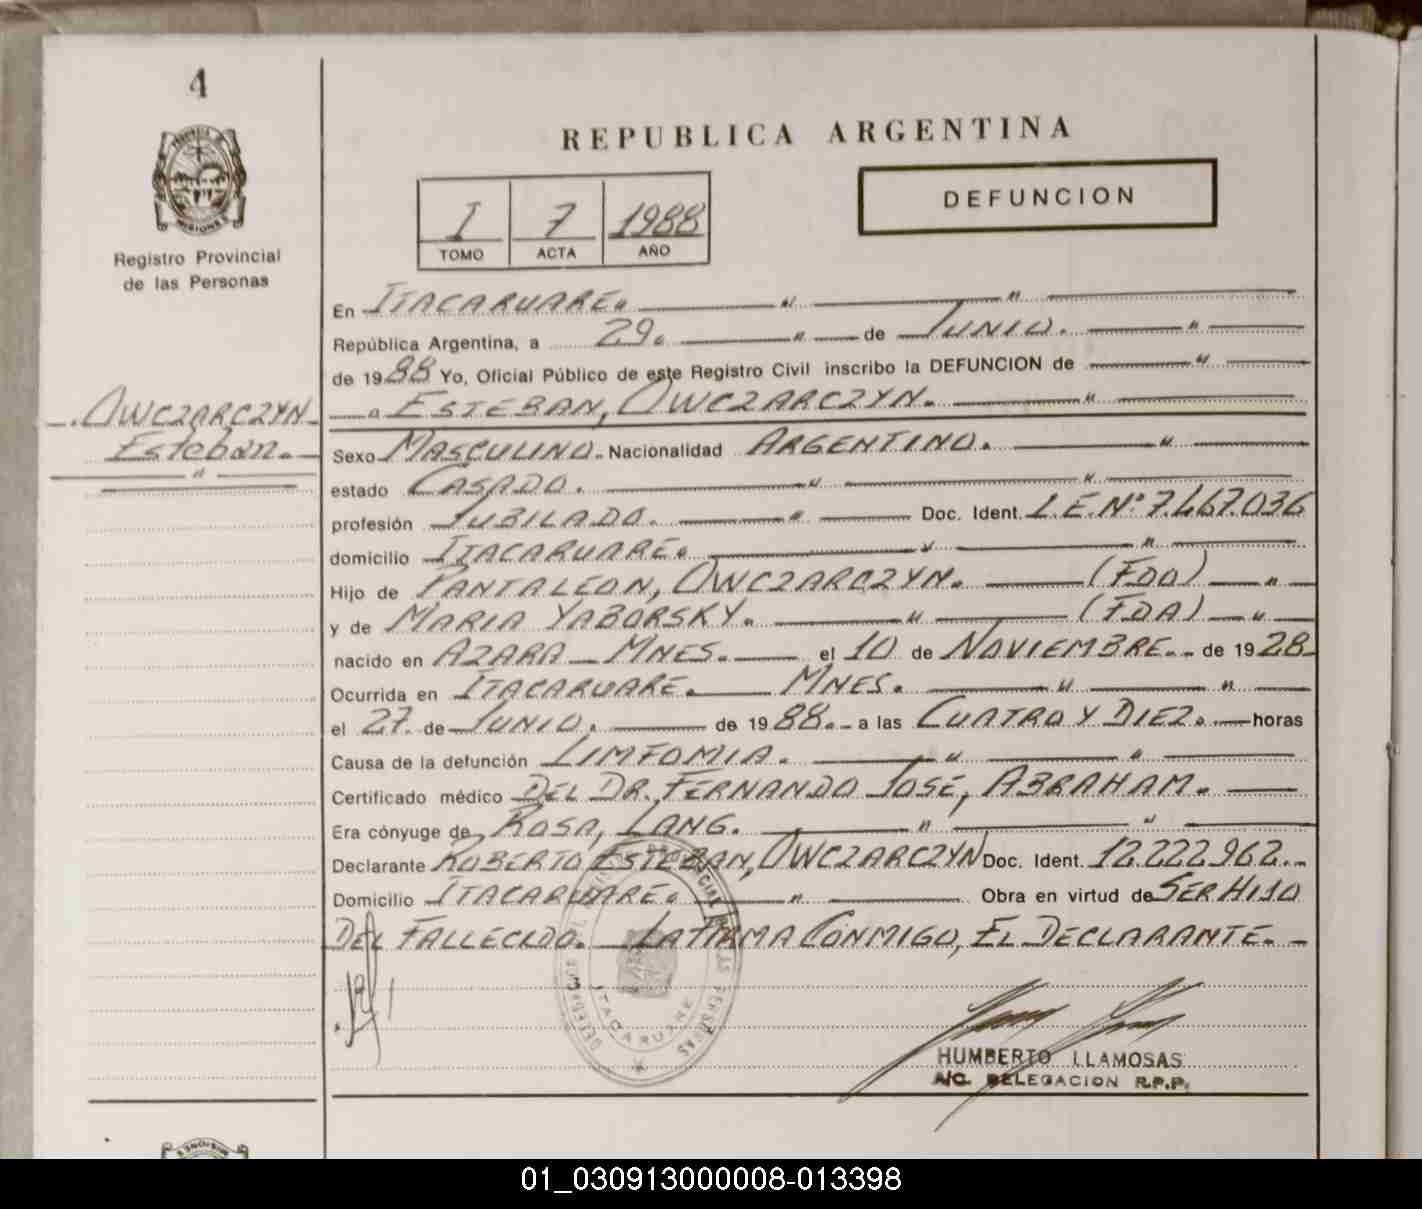 4
MISIONES
Registro Provincial
de las Personas
OWCZARCZYN
Esteban.
REPUBLICA ARGENTINA
I 7 1988
TOMO ACTA AÑO
DEFUNCION
En ITACARUARE.
República Argentina, a 29. de JUNIO.
de 1988 Yo, Oficial Público de este Registro Civil inscribo la DEFUNCION de
ESTEBAN, OWCZARCZYN.
Sexo MASCULINO. Nacionalidad ARGENTINO.
estado CASADO.
profesión JUBILADO. Doc. Ident. L.E.Nº 7.467.036
domicilio ITACARUARE.
Hijo de PANTALEON, OWCZARCZYN. (FDO)
y de MARIA YABORSKY. (FDA)
nacido en AZARA - MNES. el 10 de NOVIEMBRE. de 1928
Ocurrida en ITACARUARE. MNES.
el 27. de JUNIO. de 1988. a las CUATRO Y DIEZ. horas
Causa de la defunción LIMFOMIA.
Certificado médico DEL DR. FERNANDO JOSE, ABRAHAM.
Era cónyuge de ROSA, LANG.
Declarante ROBERTO ESTEBAN, OWCZARCZYN Doc. Ident. 12.222.962.
Domicilio ITACARUARE. Obra en virtud de SER HIJO
DEL FALLECIDO. LA FIRMA CONMIGO, EL DECLARANTE.
ITACARUARE
HUMBERTO LLAMOSAS
A/C. DELEGACION R.P.P.
01_030913000008-013398